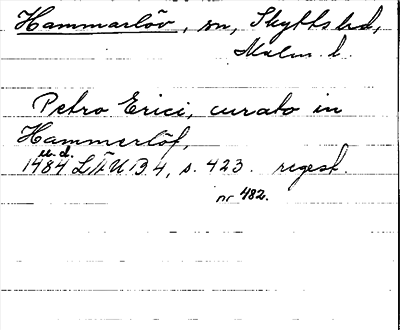 Hammarlöv, sn, Skytts hd,
Malm. l.
Petro Erici, curato in
Hammerlöf,
u. d.
1484 LÄUB 4, s. 423. regest.
nr 482.